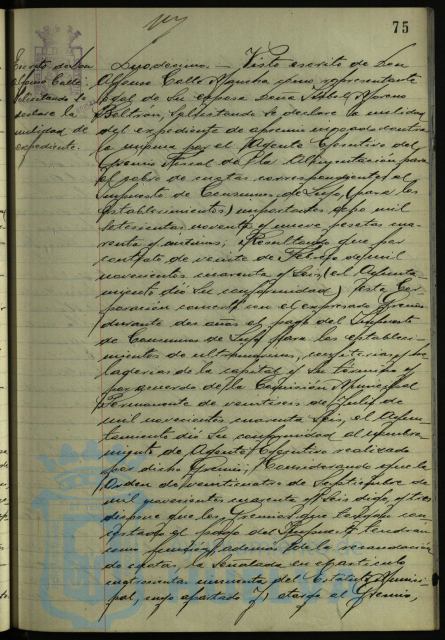 75
Escrito de Don
Alfonso Calle
solicitando se
declare la
nulidad de
expediente.
Duodecimo. — Visto escrito de Don
Alfonso Calle Mancha como representante
legal de su esposa Doña Isabel Moreno
Beltrán, solicitando se declare la nulidad
del expediente de apremio incoado contra
la misma por el Agente Ejecutivo del
Gremio Fiscal de la Alimentación para
el cobro de cuotas correspondientes al
Impuesto de Consumos de Lujo, (para los
establecimientos) importantes ocho mil
setecientas noventa y nueve pesetas
y centimos; Resultando que por
contrato de veinte de Febrero de mil
novecientos cuarenta y seis, (el Ayunta-
miento dió su conformidad) esta Cor-
poración concertó con el expresado Gremio
durante dos años el pago del Impuesto
de Consumos de Lujo para los estableci-
mientos de ultramarinos, confiterias y he-
laderias de la capital y su término y
por acuerdo de la Comisión Municipal
Permanente de veintiseis de Julio de
mil novecientos cuarenta y seis, el Ayun-
tamiento dió su conformidad al nombra-
miento de Agente Ejecutivo realizado
por dicho Gremio; Considerando que la
Orden de veinticuatro de Septiembre de
mil novecientos cuarenta y seis digo, y tres
dispone que los Gremios que tengan con-
certado el pago del Impuesto tendran
como funcion además de la recaudación
de cuotas, la señalada en el articulo
cuatrocientos cincuenta del Estatuto Munici-
pal, cuyo apartado f) otorga al Gremio,